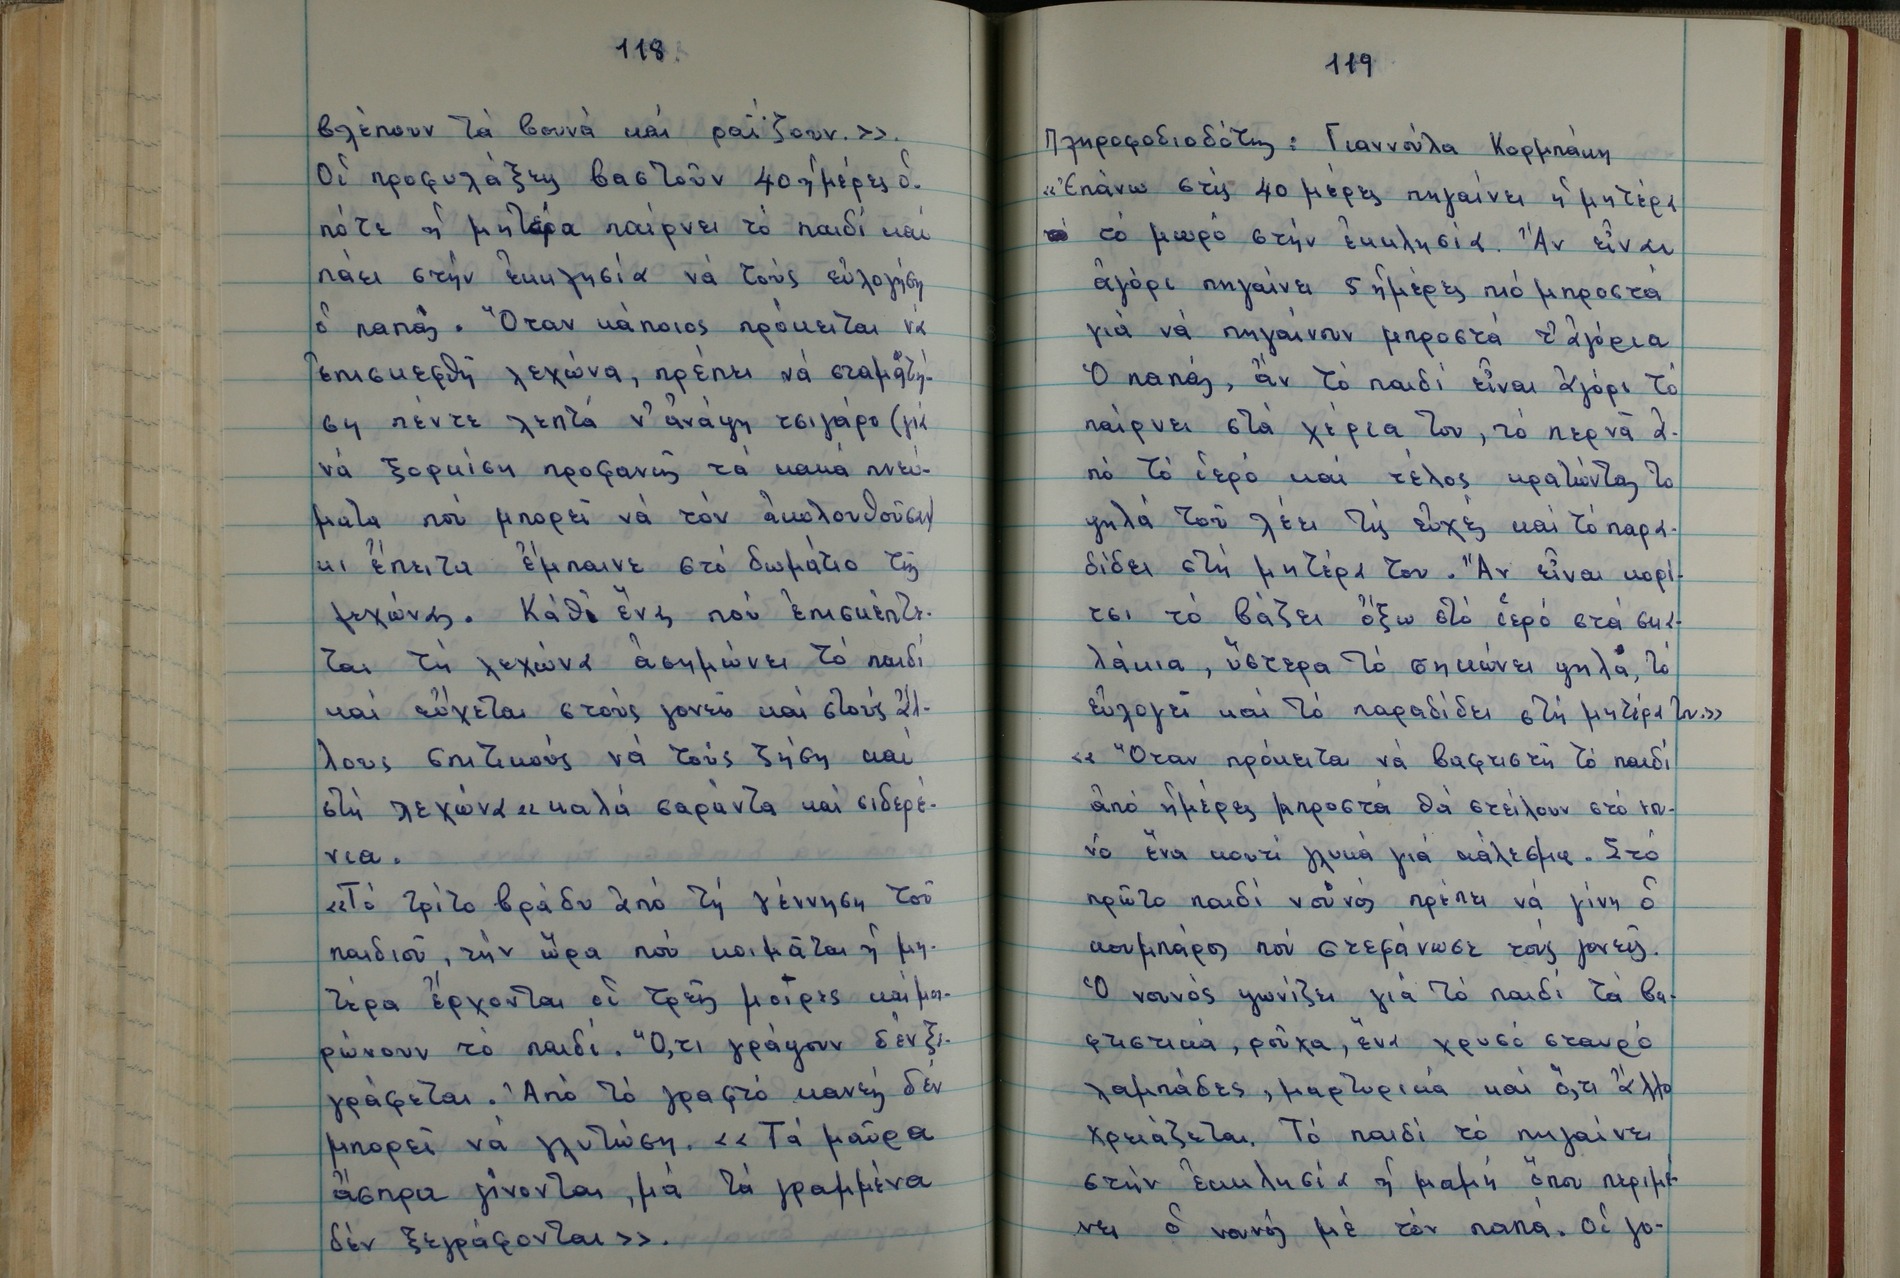 118.
βλέπουν τά βουνά καί ραΐζουν.>>.
Οἱ προφυλάξεις βαστοῦν 40 ἡμέρες ὁ-
πότε ἡ μητέρα παίρνει τό παιδί καί
πάει στήν ἐκκλησία νά τούς εὐλογήση
ὁ παπᾶς. Ὅταν κάποιος πρόκειται νά
ἐπισκεφθῆ λεχώνα, πρέπει νά σταματή-
ση πέντε λεπτά ν' ἀνάψη τσιγάρο (γιά
νά ξορκίση προφανῶς τά κακά πνεύ-
ματα πού μπορεῖ νά τόν ἀκολουθοῦσαν)
κι ἔπειτα ἔμπαινε στό δωμάτιο τῆς
λεχώνας. Κάθε ἕνας πού ἐπισκέπτε-
ται τή λεχώνα ἀσημώνει τό παιδί
καί εὔχεται στούς γονεῖς καί στούς ἄλ-
λους σπιτικούς νά τούς ζήση καί
στή λεχώνα << καλά σαράντα καί σιδερέ-
νια.
<<Τό τρίτο βράδυ ἀπό τή γέννηση τοῦ
παιδιοῦ, τήν ὥρα πού κοιμᾶται ἡ μη-
τέρα ἔρχονται οἱ τρεῖς μοῖρες καί μοι-
ρώνουν τό παιδί. Ὅ,τι γράψουν δέν ξε-
γράφεται. Ἀπό τό γραφτό κανείς δέν
μπορεῖ νά γλυτώση. << Τά μαῦρα
ἄσπρα γίνονται, μά τά γραμμένα
δέν ξεγράφονται>>.
119
Πληροφοδιοδότης: Γιαννούλα Κορμπάκη
<<Ἐπάνω στίς 40 μέρες πηγαίνει ἡ μητέρα
τό μωρό στήν ἐκκλησία. Ἄν εἶναι
ἀγόρι πηγαίνει 5 ἡμέρες πιό μπροστά
γιά νά πηγαίνουν μπροστά τ' ἀγόρια
Ὁ παπάς, ἄν τό παιδί εἶναι ἀγόρι τό
παίρνει στά χέρια του, τό περνᾶ ἀ-
πό τό ἱερό καί τέλος κρατώντας το
ψηλά τοῦ λέει τίς εὐχές καί τό παρα-
δίδει στή μητέρα του. Ἄν εἶναι κορί-
τσι τό βάζει ὄξω στό ἱερό στά σκα-
λάκια, ὕστερα τό σηκώνει ψηλά, τό
εὐλογεῖ καί τό παραδίδει στή μητέρα του.>>
<< Ὅταν πρόκειται νά βαφτιστῆ τό παιδί
ἀπό ἡμέρες μπροστά θά στείλουν στό νου-
νό ἕνα κουτί γλυκά γιά κάλεσμα. Στό
πρῶτο παιδί νουνός πρέπει νά γίνη ὁ
κουμπάρος πού στεφάνωσε τούς γονεῖς.
Ὁ νουνός ψωνίζει γιά τό παιδί τά βα-
φτιστικά, ροῦχα, ἕνα χρυσό σταυρό
λαμπάδες, μαρτυρικά καί ὅ,τι ἄλλο
χρειάζεται. Τό παιδί τό πηγαίνει
στήν ἐκκλησία ἡ μαμή ὅπου περιμέ-
νει ὁ νουνός μέ τόν παπά. Οἱ γο-